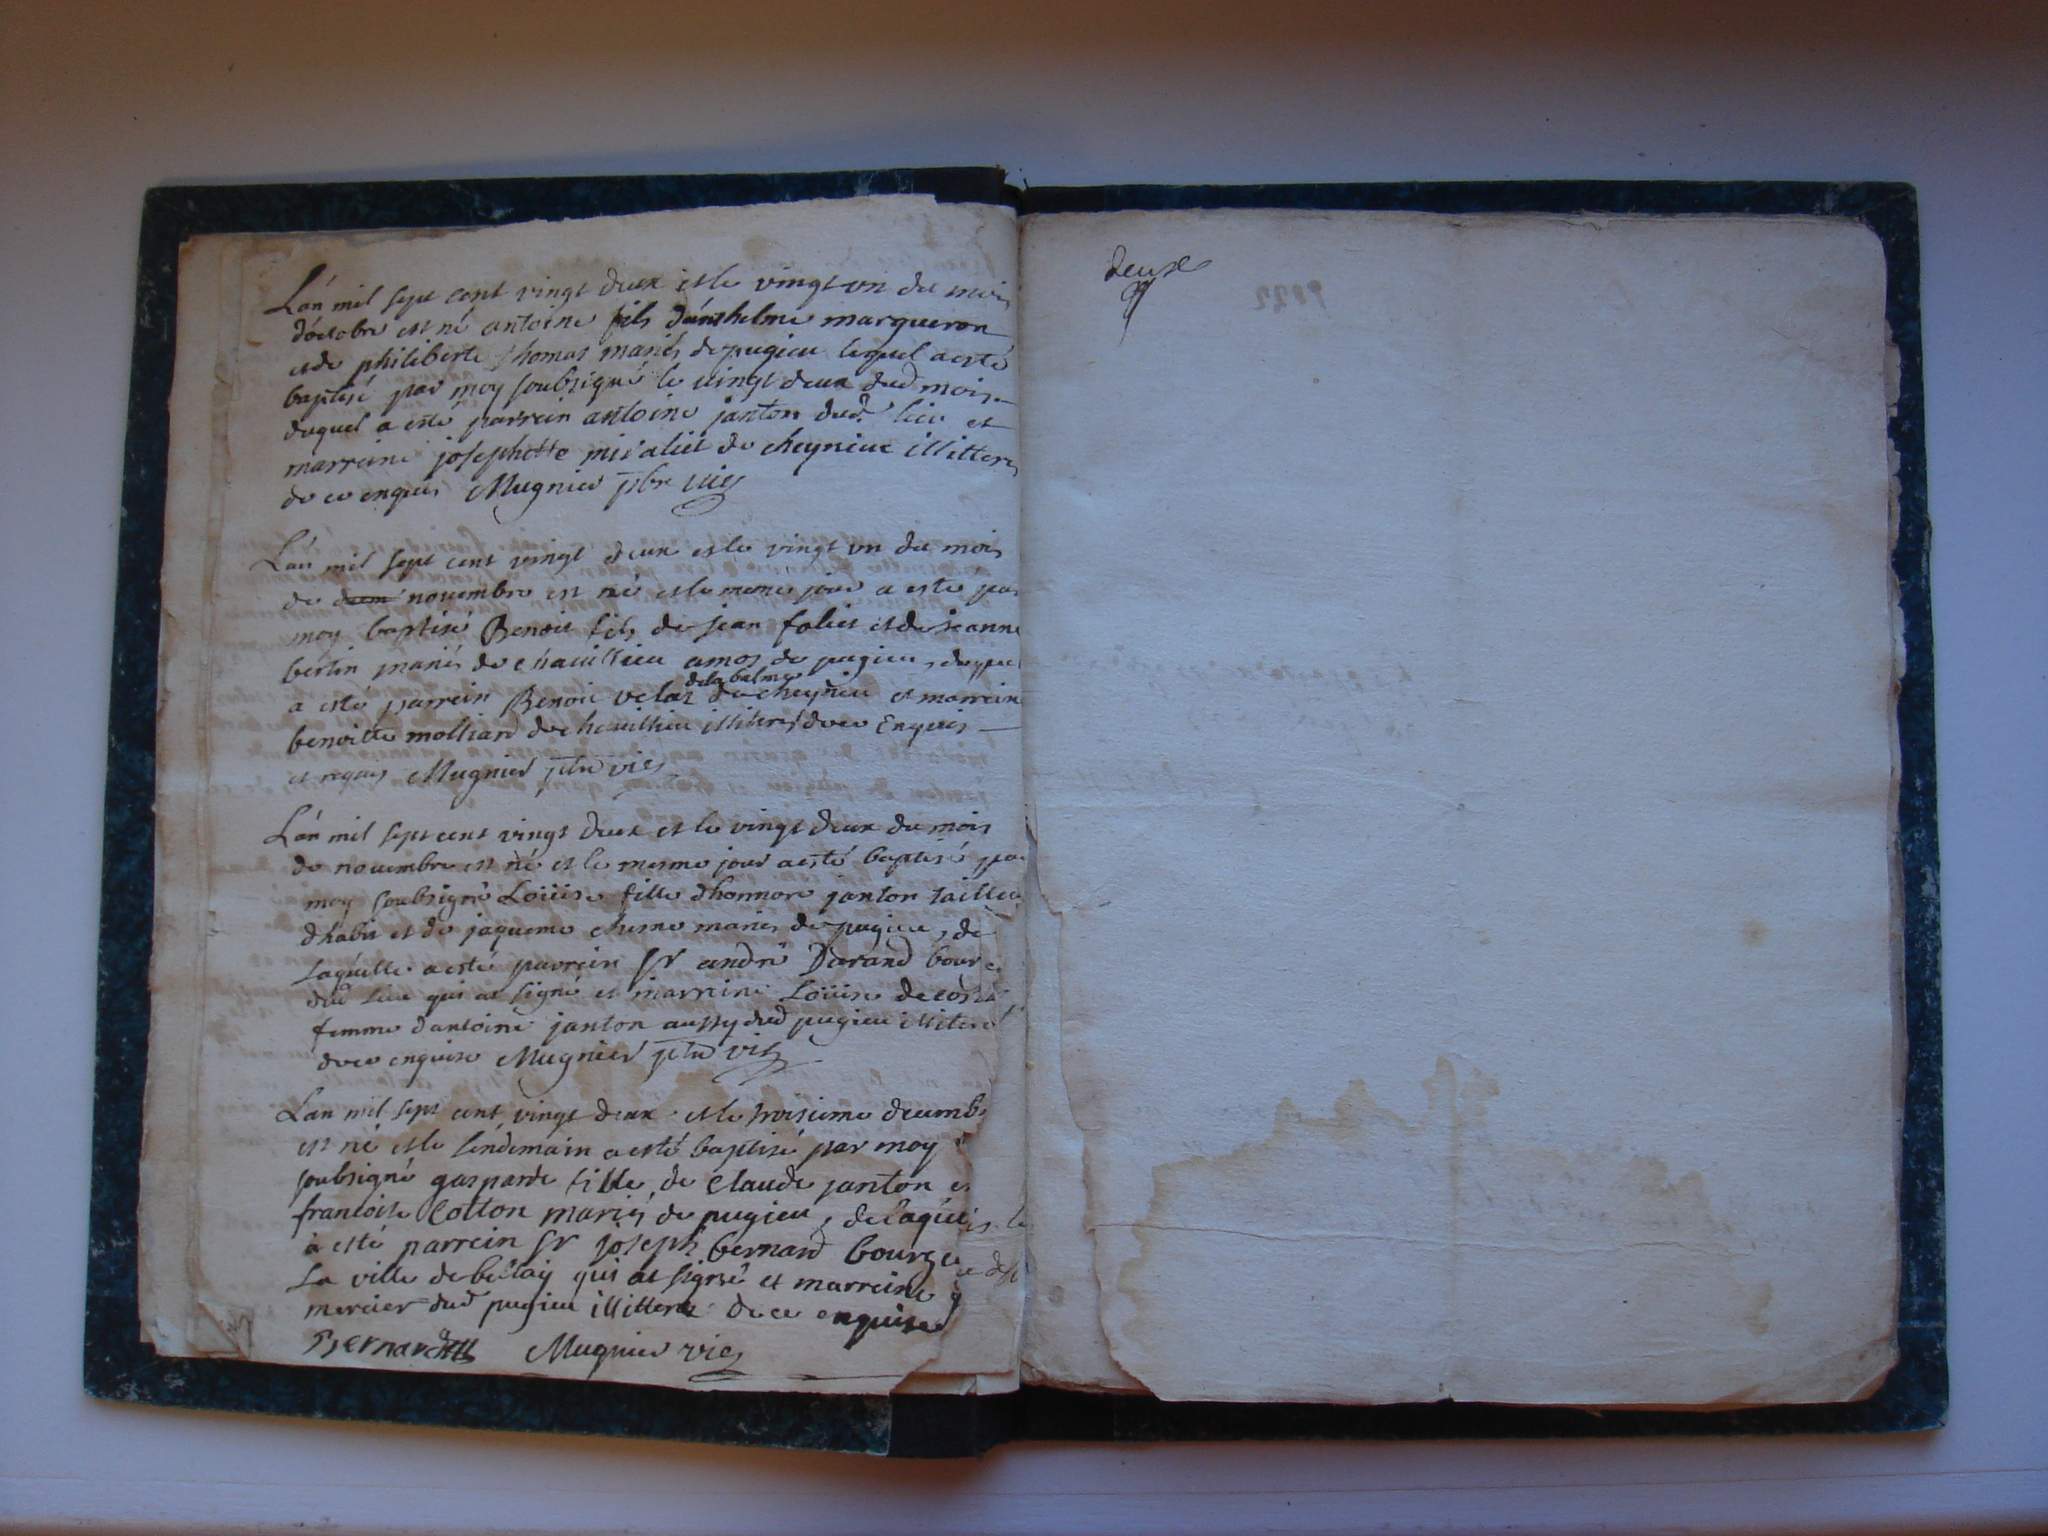 L'an mil sept cent vingt deux et le vingt un du mois
d'octobre est né antoine fils d'anthelme margueron
et de philiberte thomas mariés de pugieu lequel a esté
baptisé par moy soubsigné le vingt deux dud mois
duquel a esté parrein antoine janton dud. lieu et
marreine josephotte de cheynieu illitterés
de ce enquis Mugnier ptre vic
L'an mil sept cent vingt deux et le vingt un du mois
de novembre est né et le meme jour a esté par
moy baptisé Benoit fils de jean foliet et de jeanne
bertin mariés de chavillieu amos de pugieu, duquel
de la balme
a esté parrein Benoit velat de cheynieu et marreine
benoitte molliard de chavillieu illiterés de ce Enquis
et requis Mugnier ptre vic
L'an mil sept cent vingt deux et le vingt deux du mois
de novembre est né et le mesme jour a esté baptisé par
moy soubsigné Loüise fille d'honnore janton tailleu
d'habit et de jaqueme mariés de pugieu, de
laquelle a esté parrein sr andré Durand bour
dud lieu qui at signé et marreine Loüise
femme d'antoine janton aussy dud pugieu illiteré
de ce enquise Mugnier ptre vic
L'an mil sept cent vingt deux et le troisieme decemb
est né et le lendemain a esté baptisé par moy
soubsigné gasparde fille de Claude janton et
francoise Cotton mariés de pugieu, de laque
a esté parrein sr joseph bernard bourge
La ville de bellay qui at signé et marreine
mercier dud pugieu illitere de ce enquise
Bernard Mugnier vic
deux